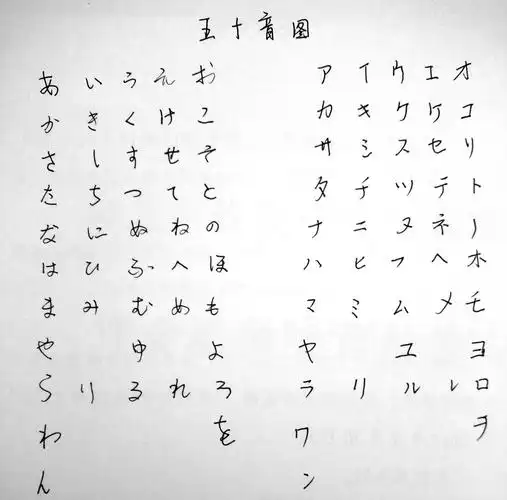 五十音图
あ い う え お ア イ ウ エ オ
か き く け こ カ キ ケ ケ コ
さ し す せ そ サ シ ス セ リ
た ち つ て と タ チ ツ テ ト
な に ぬ ね の ナ ニ ヌ ネ ノ
は ひ ふ へ ほ ハ ヒ フ ヘ ホ
ま み む め も マ ミ ム メ モ
や ゆ よ ヤ ユ ヨ
ら り る れ ろ ラ リ ル レ ロ
わ を ワ ヲ
ん ン